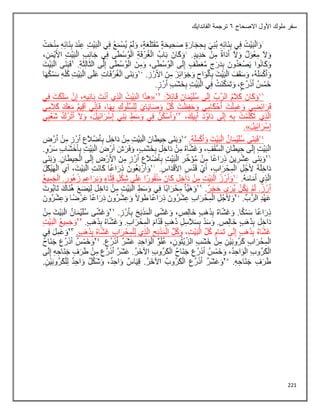 سفر ملوك أول الاصحاح 6 ترجمة الفاندايك
7وَالْبَيْتُ فِي بِنَائِهِ بُنِيَ بِحِجَارَةٍ صَحِيحَةٍ مُقْتَلَعَةٍ، وَلَمْ يُسْمَعْ فِي الْبَيْتِ عِنْدَ بِنَائِهِ مِنْحَتٌ
وَلاَ مِعْوَلٌ وَلاَ أَدَاةٌ مِنْ حَدِيدٍ. 8وَكَانَ بَابُ الْغُرْفَةِ الْوُسْطَى فِي جَانِبِ الْبَيْتِ الأَيْمَنِ،
وَكَانُوا يَصْعَدُونَ بِدَرَجٍ مُعَطَّفٍ إِلَى الْوُسْطَى، وَمِنَ الْوُسْطَى إِلَى الثَّالِثَةِ. 9فَبَنَى الْبَيْتَ
وَأَكْمَلَهُ، وَسَقَفَ الْبَيْتَ بِأَلْوَاحٍ وَجَوَائِزَ مِنَ الأَرْزِ. 10وَبَنَى الْغُرُفَاتِ عَلَى الْبَيْتِ كُلِّهِ سَمْكُهَا
خَمْسُ أَذْرُعٍ، وَتَمَكَّنَتْ فِي الْبَيْتِ بِخَشَبِ أَرْزٍ.
11وَكَانَ كَلاَمُ الرَّبِّ إِلَى سُلَيْمَانَ قَائِلاً: 12«هذَا الْبَيْتُ الَّذِي أَنْتَ بَانِيهِ، إِنْ سَلَكْتَ فِي
فَرَائِضِي وَعَمِلْتَ أَحْكَامِي وَحَفِظْتَ كُلَّ وَصَايَايَ لِلسُّلُوكِ بِهَا، فَإِنِّي أُقِيمُ مَعَكَ كَلاَمِي
الَّذِي تَكَلَّمْتُ بِهِ إِلَى دَاوُدَ أَبِيكَ، 13وَأَسْكُنُ فِي وَسَطِ بَنِي إِسْرَائِيلَ، وَلاَ أَتْرُكُ شَعْبِي
إِسْرَائِيلَ».
14فَبَنَى سُلَيْمَانُ الْبَيْتَ وَأَكْمَلَهُ. 15وَبَنَى حِيطَانَ الْبَيْتِ مِنْ دَاخِل بِأَضْلاَعِ أَرْزٍ مِنْ أَرْضِ
الْبَيْتِ إِلَى حِيطَانِ السَّقْفِ، وَغَشَّاهُ مِنْ دَاخِل بِخَشَبٍ، وَفَرَشَ أَرْضَ الْبَيْتِ بِأَخْشَابِ سَرْوٍ.
16وَبَنَى عِشْرِينَ ذِرَاعًا مِنْ مُؤَخَّرِ الْبَيْتِ بِأَضْلاَعِ أَرْزٍ مِنَ الأَرْضِ إِلَى الْحِيطَانِ. وَبَنَى
دَاخِلَهُ لأَجْلِ الْمِحْرَابِ، أَيْ قُدْسِ الأَقْدَاسِ. 17وَأَرْبَعُونَ ذِرَاعًا كَانَتِ الْبَيْتَ، أَيِ الْهَيْكَلَ
الَّذِي أَمَامَهُ. 18وَأَرْزُ الْبَيْتِ مِنْ دَاخِل كَانَ مَنْقُورًا عَلَى شِكْلِ قِثَّاءٍ وَبَرَاعِمِ زُهُورٍ. الْجَمِيعُ
أَرْزٌ. لَمْ يَكُنْ يُرَى حَجَرٌ. 19وَهَيَّأَ مِحْرَابًا فِي وَسَطِ الْبَيْتِ مِنْ دَاخِل لِيَضَعَ هُنَاكَ تَابُوتَ
عَهْدِ الرَّبِّ. 20وَلأَجْلِ الْمِحْرَابِ عِشْرُونَ ذِرَاعًا طُولاً وَعِشْرُونَ ذِرَاعًا عَرْضًا وَعِشْرُونَ
ذِرَاعًا سَمْكًا. وَغَشَّاهُ بِذَهَبٍ خَالِصٍ، وَغَشَّى الْمَذْبَحَ بِأَرْزٍ. 21وَغَشَّى سُلَيْمَانُ الْبَيْتَ مِنْ
دَاخِل بِذَهَبٍ خَالِصٍ. وَسَدَّ بِسَلاَسِلِ ذَهَبٍ قُدَّامَ الْمِحْرَابِ. وَغَشَّاهُ بِذَهَبٍ. 22وَجَمِيعُ الْبَيْتِ
غَشَّاهُ بِذَهَبٍ إِلَى تَمَامِ كُلِّ الْبَيْتِ، وَكُلُّ الْمَذْبَحِ الَّذِي لِلْمِحْرَابِ غَشَّاهُ بِذَهَبٍ. 23وَعَمِلَ فِي
الْمِحْرَابِ كَرُوبَيْنِ مِنْ خَشَبِ الزَّيْتُونِ، عُلُوُّ الْوَاحِدِ عَشَرُ أَذْرُعٍ. 24وَخَمْسُ أَذْرُعٍ جَنَاحُ
الْكَرُوبِ الْوَاحِدِ، وَخَمْسُ أَذْرُعٍ جَنَاحُ الْكَرُوبِ الآخَرِ. عَشَرُ أَذْرُعٍ مِنْ طَرَفِ جَنَاحِهِ إِلَى
طَرَفِ جَنَاحِهِ. 25وَعَشَرُ أَذْرُعٍ الْكَرُوبُ الآخَرُ. قِيَاسٌ وَاحِدٌ، وَشَكْلٌ وَاحِدٌ لِلْكَرُوبَيْنِ.
221